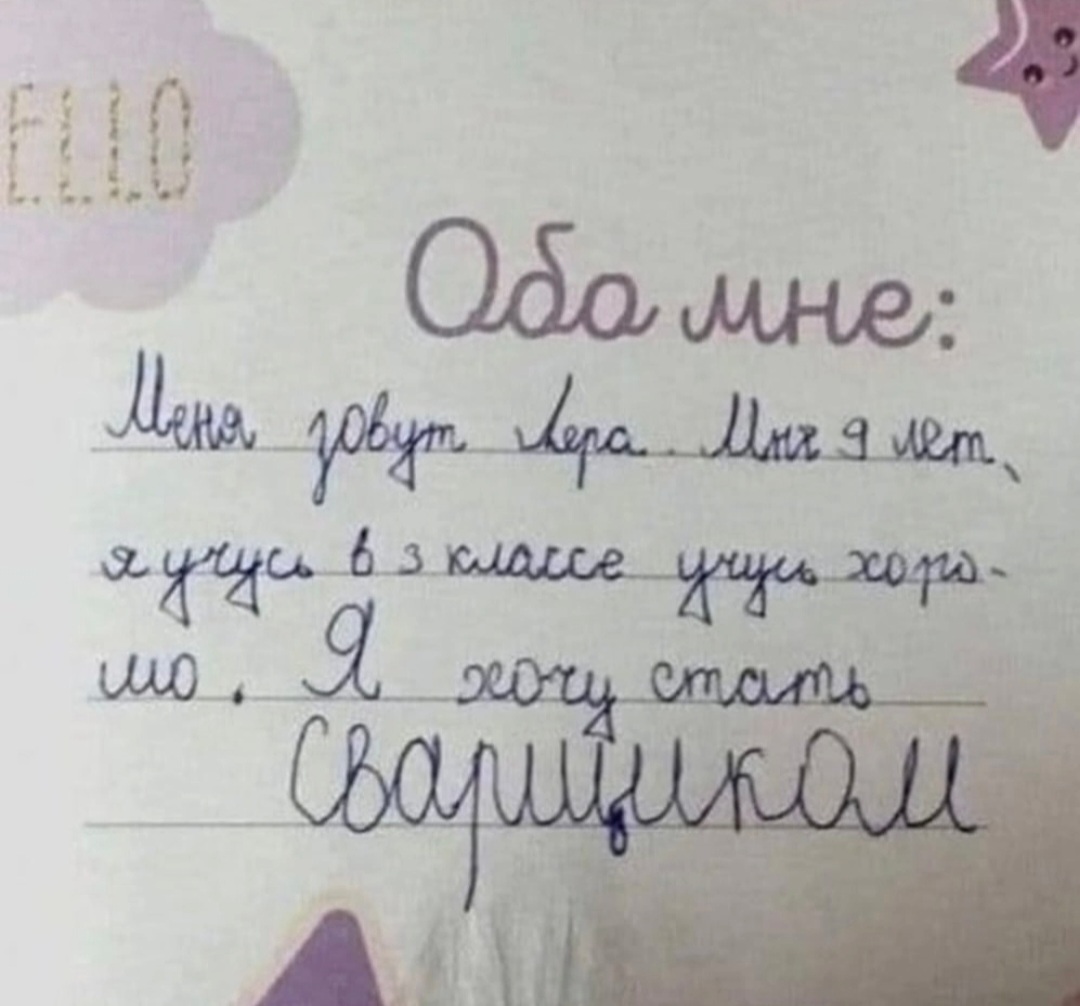 ELLO
Обо мне:
Меня зовут Лера. Мне 9 лет,
я учусь в 3 классе учусь хоро-
шо. Я хочу стать
Сварщиком